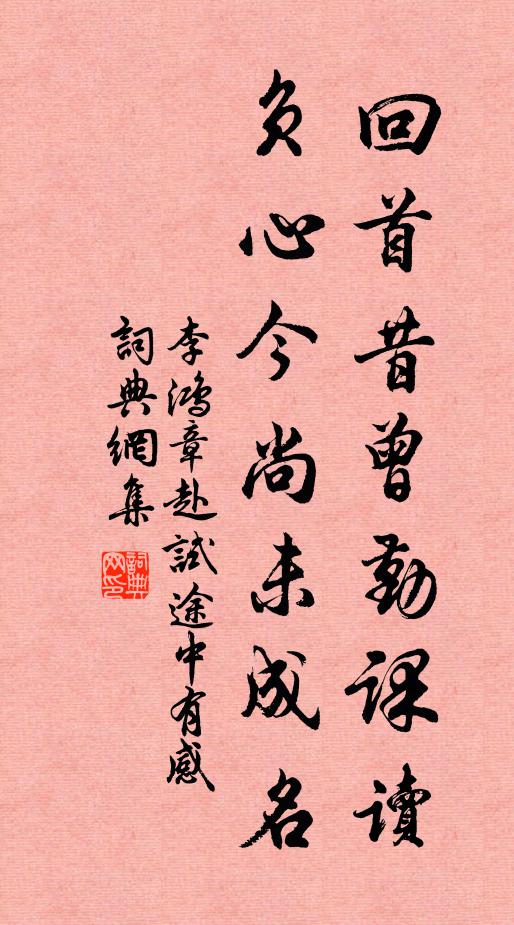 回首昔曾勤課讀
負心今尚未成名
李鴻章赴試途中有感
詞典網集
詞典网印